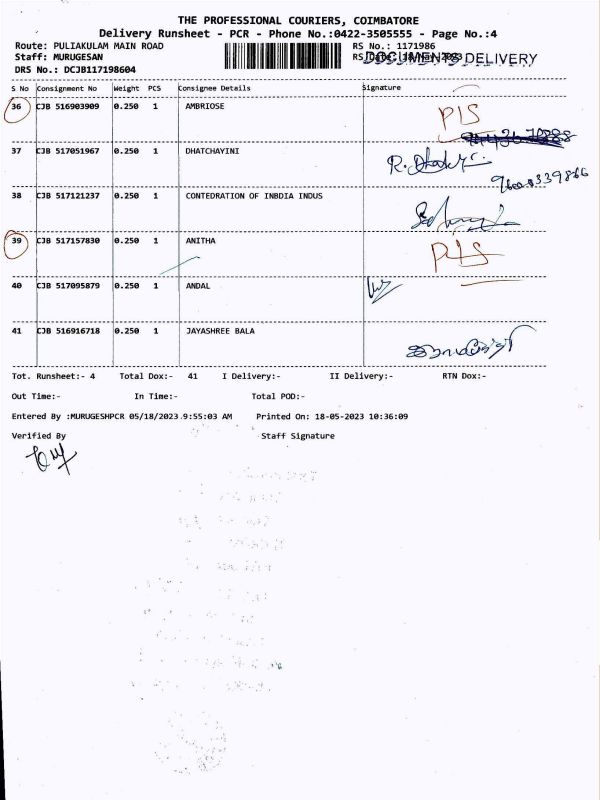 THE PROFESSIONAL COURIERS, COIMBATORE
Delivery Runsheet - PCR - Phone No.:0422-3505555 - Page No.:4
Route: PULIAKULAM MAIN ROAD RS No.: 1171986
Staff: MURUGESAN DOCUMENTS DELIVERY
DRS No.: DCJB117198604
S No Consignment No Weight PCS Consignee Details Signature
36 CJB 516903909 0.250 1 AMBRIOSE
37 CJB 517051967 0.250 1 DHATCHAYINI
38 CJB 517121237 0.250 1 CONTEDRATION OF INBDIA INDUS
39 CJB 517157830 0.250 1 ANITHA
40 CJB 517095879 0.250 1 ANDAL
41 CJB 516916718 0.250 1 JAYASHREE BALA
Tot. Runsheet:- 4 Total Dox:- 41 I Delivery:- II Delivery:- RTN Dox:-
Out Time:- In Time:- Total POD:-
Entered By :MURUGESHPCR 05/18/2023 9:55:03 AM Printed On: 18-05-2023 10:36:09
Verified By Staff Signature